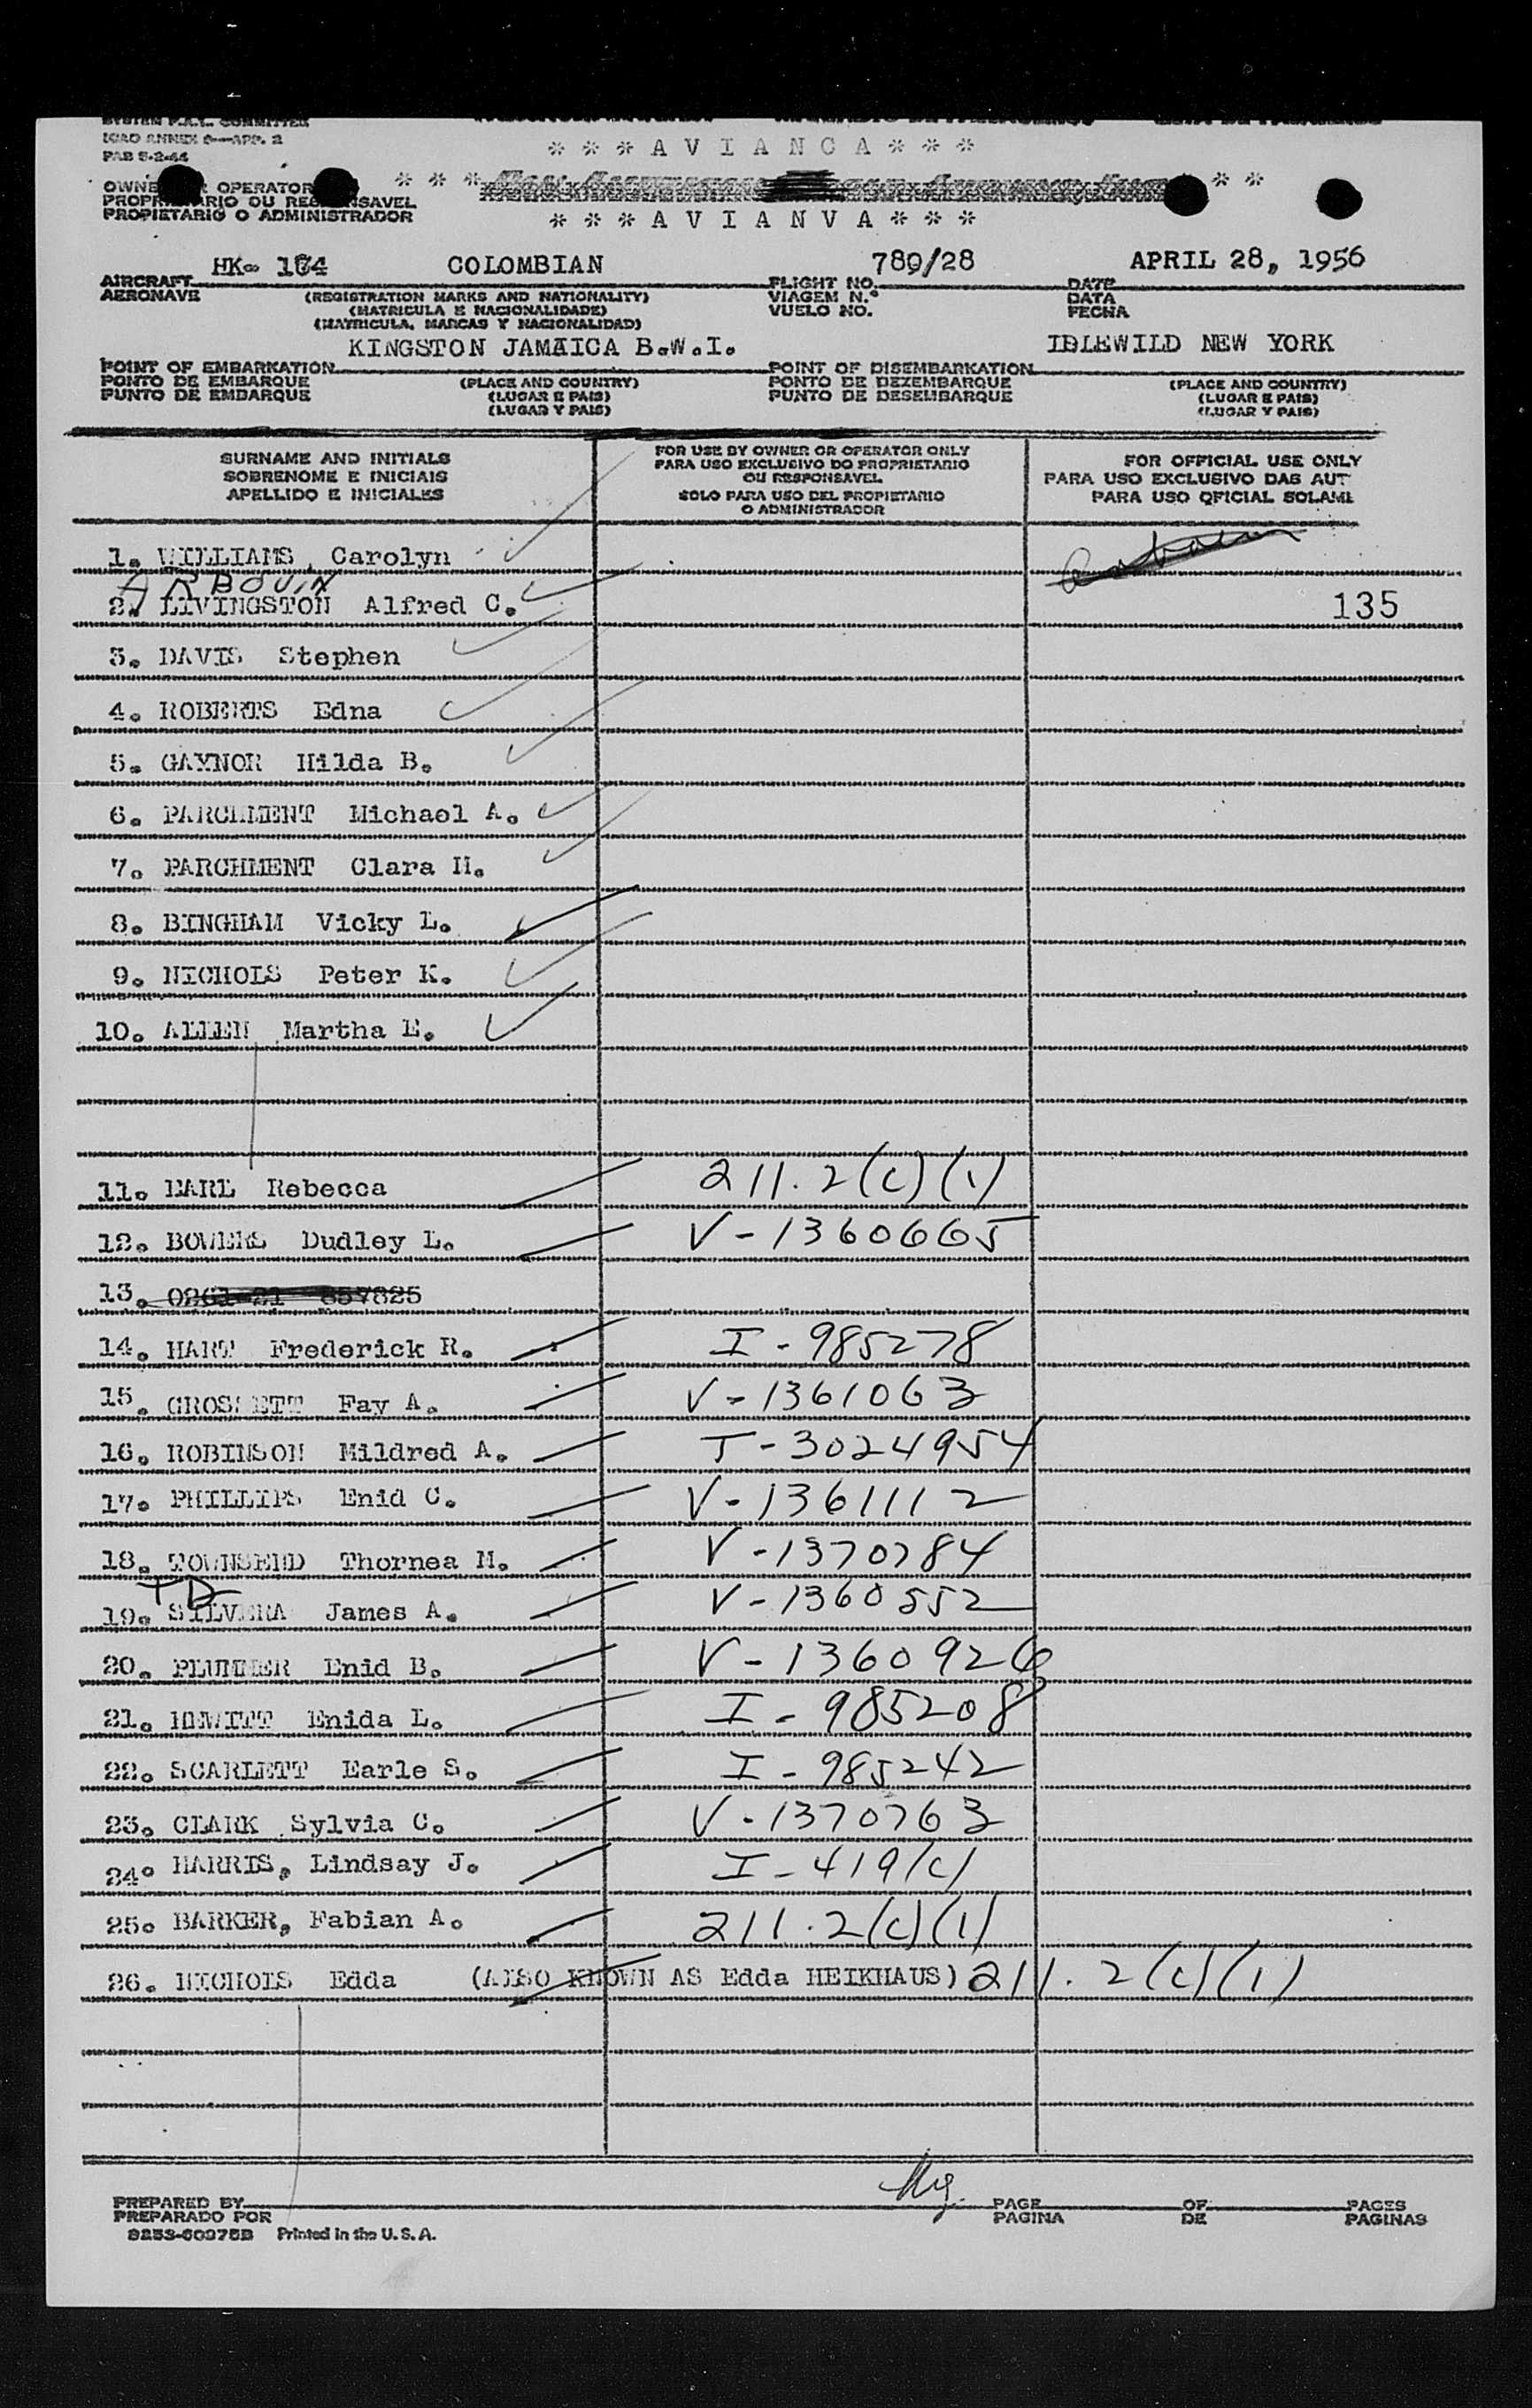 SYSTEM P.A.T. COMMITTEE
ICAO ANNEX 9—APP. 2
PAB 5-2-44
* * * A V I A N C A * * *
OWNER OR OPERATOR
PROPRIETARIO OU RESPONSAVEL
PROPIETARIO O ADMINISTRADOR
* * * A V I A N V A * * *
HK- 164 COLOMBIAN 789/28 APRIL 28, 1956
AIRCRAFT FLIGHT NO. DATE
AERONAVE (REGISTRATION MARKS AND NATIONALITY) VIAGEM N.º DATA
(MATRICULA E NACIONALIDADE) VUELO NO. FECHA
(MATRICULA, MARCAS Y NACIONALIDAD)
KINGSTON JAMAICA B.W.I. IDLEWILD NEW YORK
POINT OF EMBARKATION POINT OF DISEMBARKATION
PONTO DE EMBARQUE (PLACE AND COUNTRY) PONTO DE DEZEMBARQUE (PLACE AND COUNTRY)
PUNTO DE EMBARQUE (LUGAR E PAIS) PUNTO DE DESEMBARQUE (LUGAR E PAIS)
(LUGAR Y PAIS) (LUGAR Y PAIS)
SURNAME AND INITIALS FOR USE BY OWNER OR OPERATOR ONLY FOR OFFICIAL USE ONLY
SOBRENOME E INICIAIS PARA USO EXCLUSIVO DO PROPRIETARIO PARA USO EXCLUSIVO DAS AUT
OU RESPONSAVEL
APELLIDO E INICIALES SOLO PARA USO DEL PROPIETARIO PARA USO OFICIAL SOLAME
O ADMINISTRADOR
1. WILLIAMS, Carolyn
ARBOUIN
2. LIVINGSTON Alfred C. 135
3. DAVIS Stephen
4. ROBERTS Edna
5. GAYNOR Hilda B.
6. PARCHMENT Michael A.
7. PARCHMENT Clara H.
8. BINGHAM Vicky L.
9. NICHOLS Peter K.
10. ALLEN Martha E.
11. EARL Rebecca 211.2(c)(1)
12. BOWERS Dudley L. V-1360665
13. 0261-21 857825
14. HART Frederick R. I-985278
15. GROSSETT Fay A. V-1361063
16. ROBINSON Mildred A. T-3024954
17. PHILLIPS Enid C. V-1361112
18. TOWNSEND Thornea M. V-1370784
TD
19. SILVERA James A. V-1360552
20. PLUMMER Enid B. V-1360926
21. HEWITT Enida L. I-985208
22. SCARLETT Earle S. I-985242
23. CLARK Sylvia C. V-1370763
24. HARRIS, Lindsay J. I-419(c)
25. BARKER, Fabian A. 211.2(c)(1)
26. NICHOLS Edda (ALSO KNOWN AS Edda HEIKHAUS) 211.2(c)(1)
PREPARED BY PAGE OF PAGES
PREPARADO POR PAGINA DE PAGINAS
9253-60975B Printed in the U.S.A.